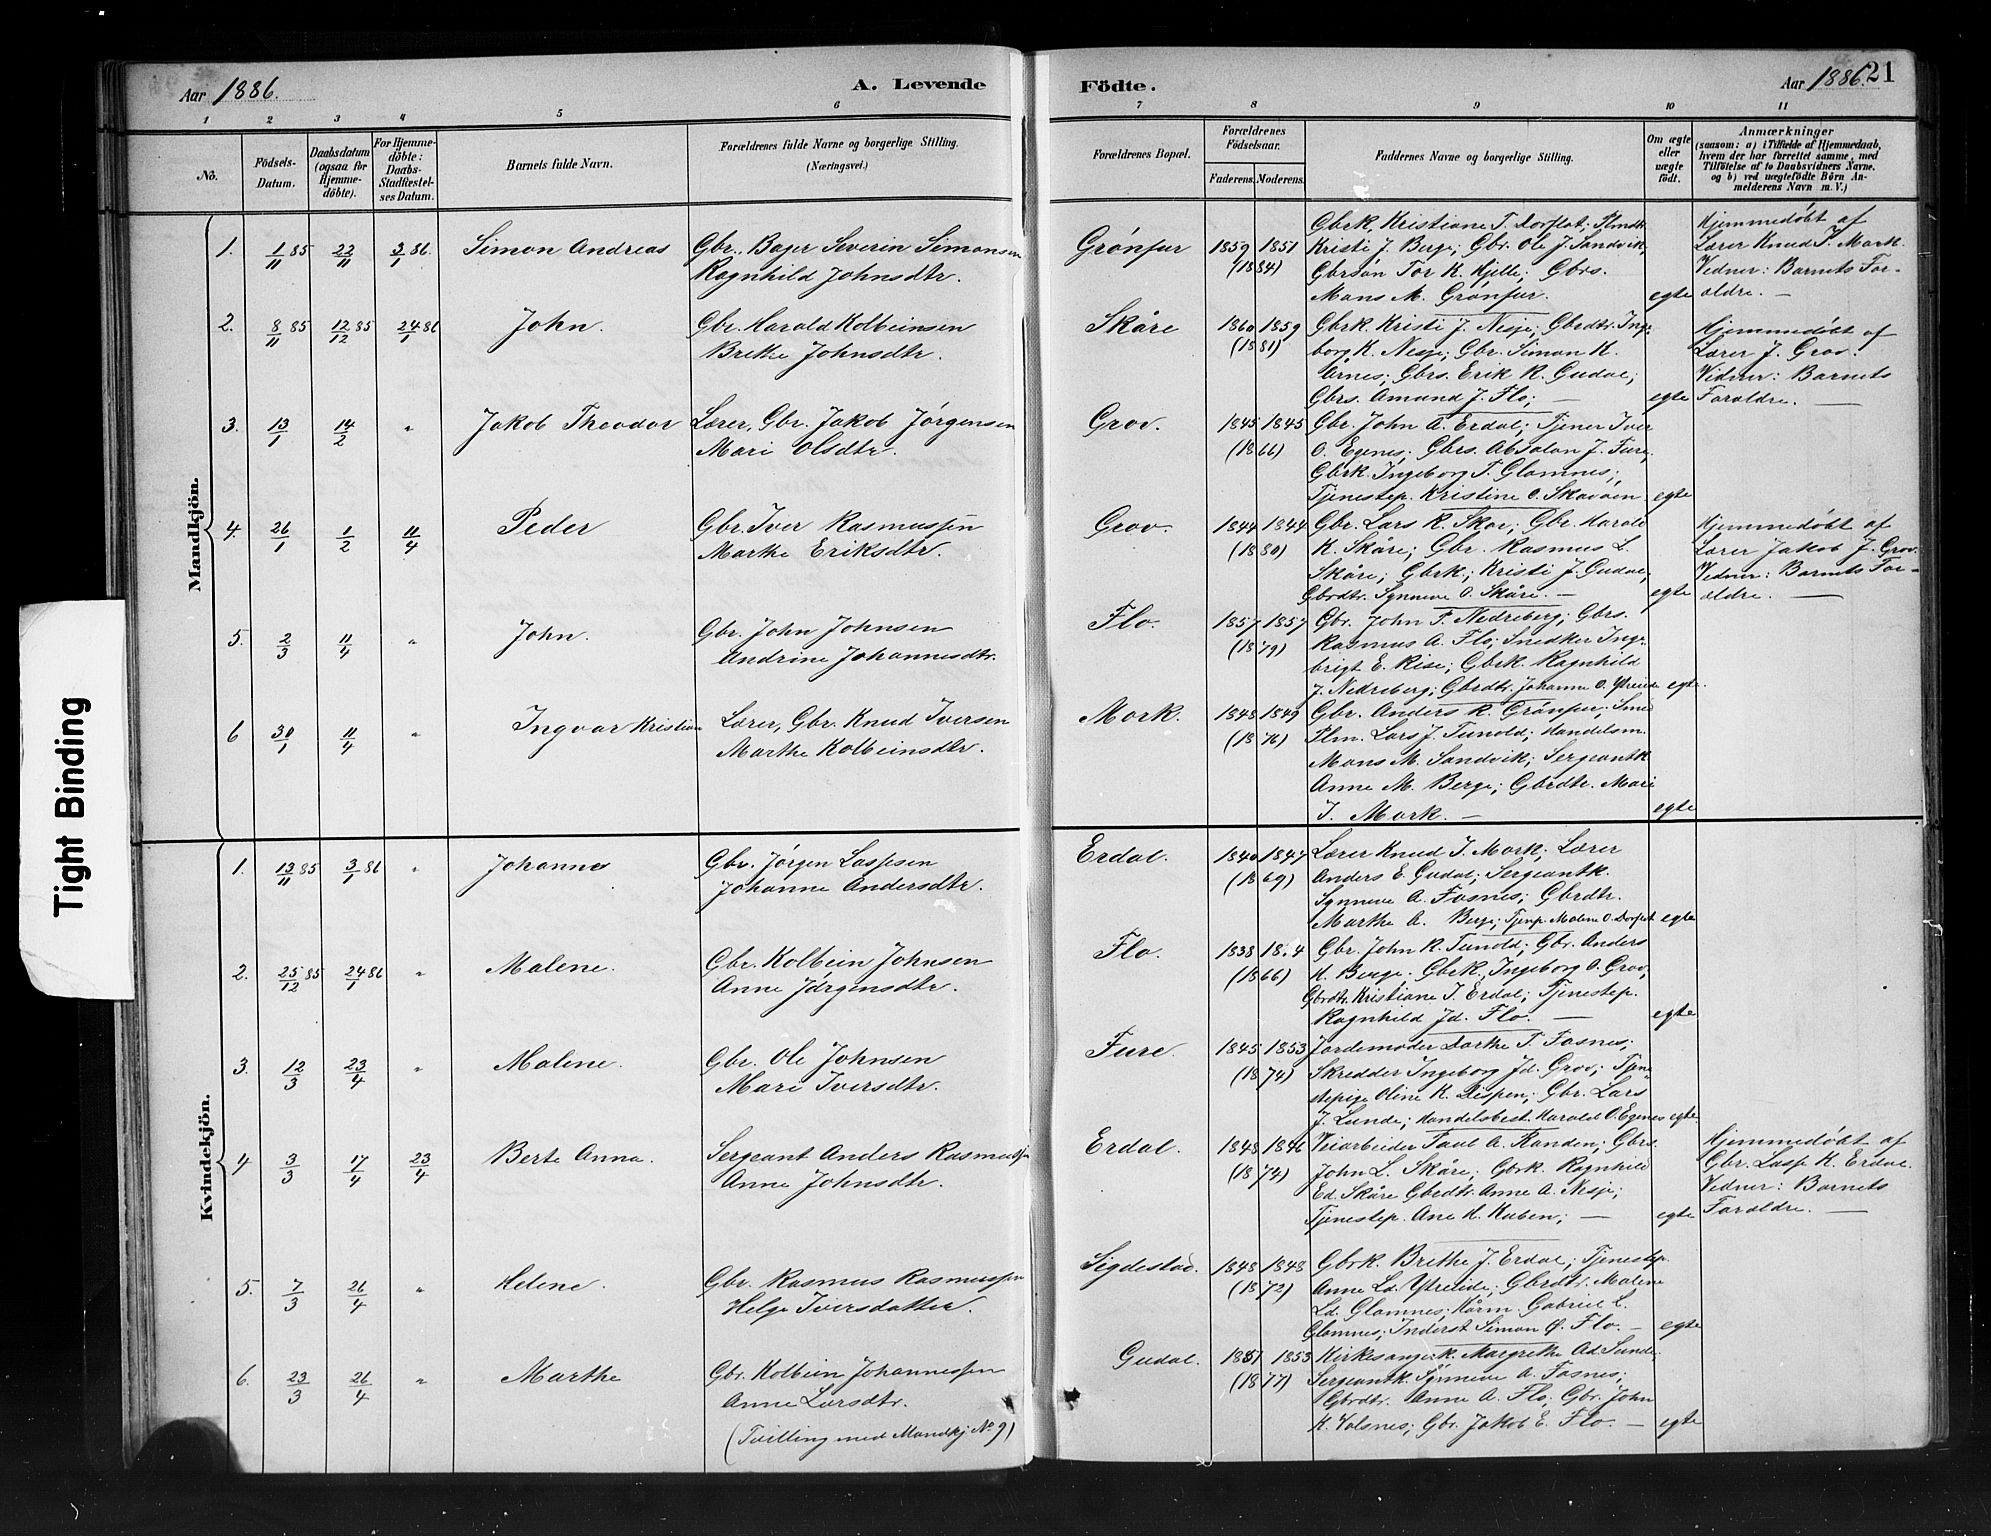 Aar 1886.
A. Levende
Födte.
Aar 1886.
21
1 2 3 4 5 6 7 8 9 10 11
No.
Födsels-
Datum.
Daabsdatum
(ogsaa for
Hjemme-
döbte).
For Hjemme-
döbte:
Daabs-
Stadfæstel-
ses Datum.
Barnets fulde Navn.
Forældrenes fulde Navne og borgerlige Stilling.
(Næringsvei.)
Forældrenes Bopæl.
Forældrenes
Födselsaar.
Faderens. Moderens.
Faddernes Navne og borgerlige Stilling.
Om ægte
eller
uægte
födt.
Anmærkninger
(saasom: a) i Tilfælde af Hjemmedaab,
hvem der har forrettet samme, med
Tilföielse af to Daabsvidners Navne,
og b) ved uægtefödte Börn An-
melderens Navn m. V.)
Mandkjön.
1. 1/11 85 22/11 3/1 86 Simon Andreas
Gbr. Bager Severin Simonsen
Ragnhild Johnsdtr.
Grönfur 1859 1851
(1884)
Gbrk. Kristiane T. Dorflot;
Kristi J. Berge; Gbr. Ole J. Sandvik;
Gbrsön Tor K. Hjelle; Gbrs.
Mons M. Grönfur. egte
Hjemmedöbt af
Lærer Knud I. Mork.
Vidner: Barnets For-
ældre. —
2. 8/11 85 12/12 85 24/1 86 John.
Gbr. Harald Kolbeinsen
Brithe Johnsdtr.
Skåre 1860 1859
(1881)
Gbrk. Kristi J. Nesje; Gbrdtr. Inge-
borg K. Nesje; Gbr. Simon K.
Årnes; Gbrs. Erik R. Gudal;
Gbrs. Amund J. Flo; — egte
Hjemmedöbt af
Lærer J. Grov.
Vidner: Barnets
Forældre. —
3. 13/1 14/2 " Jakob Theodor
Lærer, Gbr. Jakob Jörgensen
Mari Olsdtr.
Grov. 1845 1845
(1866)
Gbr. John A. Erdal; Tjener Iver
O. Egenes; Gbrs. Absalon J. Fure;
Gbrk. Ingeborg T. Glomnes;
Tjenestep. Kristine O. Skaaden egte
4. 26/1 1/2 11/4 Peder
Gbr. Iver Rasmussen
Marthe Eriksdtr.
Grov. 1844 1844
(1880)
Gbr. Lars R. Skar; Gbr. Harald
K. Skåre; Gbr. Rasmus L.
Skåre; Gbrk; Kristi J. Gudal;
Gbrdtr. Synneve O. Skåre. — egte
Hjemmedöbt af
Lærer Jakob J. Grov.
Vidner: Barnets For-
ældre. —
5. 2/3 11/4 " John.
Gbr. John Johnsen
Andrine Johannesdtr.
Flo. 1857 1857
(1879)
Gbr. John P. Nedreberg; Gbrs.
Rasmus A. Flo; Snedker Inge-
brigt E. Rise; Gbrk. Ragnhild
J. Nedreberg; Gbrdtr. Johanne O. Ytreide egte.
6 30/1 11/4 " Ingvar Kristian
Lærer, Gbr. Knud Iversen
Marthe Kolbeinsdtr.
Mork. 1848 1849
(1876)
Gbr. Anders R. Grönfur; Smed
Plm. Lars J. Tunold; Handelsm.
Mons M. Sandvik; Sergeantk
Anne M. Berge; Gbrdtr. Mari
I. Mork. — egte
Kvindekjön.
1. 13/11 85 3/1 86 " Johanne
Gbr. Jörgen Laspesen
Johanne Andersdtr.
Erdal. 1840 1847
(1869)
Lærer Knud I. Mork; Lærer
Anders E. Gudal; Sergeantk.
Synneve A. Fosnes; Gbrdtr.
Marthe A. Berge; Tjenp. Malene O. Dorflot egte
2. 25/12 85 24/1 86 " Malene.
Gbr. Kolbein Johnsen
Anne Jörgensdtr.
Flo. 1838
(1866)
Gbr. John R. Tunold; Gbr. Anders
K. Berge. Gbrk. Ingeborg O. Grov;
Gbrdtr. Kristiane I. Erdal; Tjenestep.
Ragnhild Jd. Flo. — egte
3. 12/3 23/4 " Malene.
Gbr. Ole Johnsen
Mari Iversdtr.
Fure. 1845 1853
(1874)
Jordemoder Dorthe T. Fosnes;
Skredder Ingeborg Jd. Grov; Tjene-
stepige Oline K. Nispen; Gbr. Lars
J. Lunde; Handelsbest. Harald O. Egenes egte
4 3/3 17/4 23/4 Berte Anna.
Sergeant Anders Rasmussen
Anne Johnsdtr.
Erdal. 1848 1846
(1874)
Veiarbeider Paul A. Randen; Gbrs.
John L. Skåre; Gbrk. Ragnhild
Ed. Skåre Gbrdtr. Anne A. Nesje;
Tjenestep. Ane K. Kuben; — egte
Hjemmedöbt af
Gbr. Lasp K. Erdal.
Vidner: Barnets
Forældre. —
5. 7/3 26/4 " Helene.
Gbr. Rasmus Rasmussen
Helge Iversdatter.
Sigdestad. 1848 1848
(1872)
Gbrk. Brithe J. Erdal; Tjenestep.
Anne Ld. Ytreeide; Gbrdtr. Malene
Ld. Glomnes; Kårm. Gabriel L.
Glomnes; Inderst Simon Ø. Flo. — egte
6. 23/3 26/4 " Marthe
Gbr. Kolbein Johannessen
Anne Larsdtr.
(Tvilling med Mandkj No 9)
Gudal. 1851 1853
(1877)
Kirkesanger k. Margrethe Ad. Sunde;
Sergeantk. Synneve A. Fosnes;
Gbrdtr. Anne A. Flo; Gbr. John
K. Volsnes; Gbr. Jakob E. Flo. — egte
Tight Binding